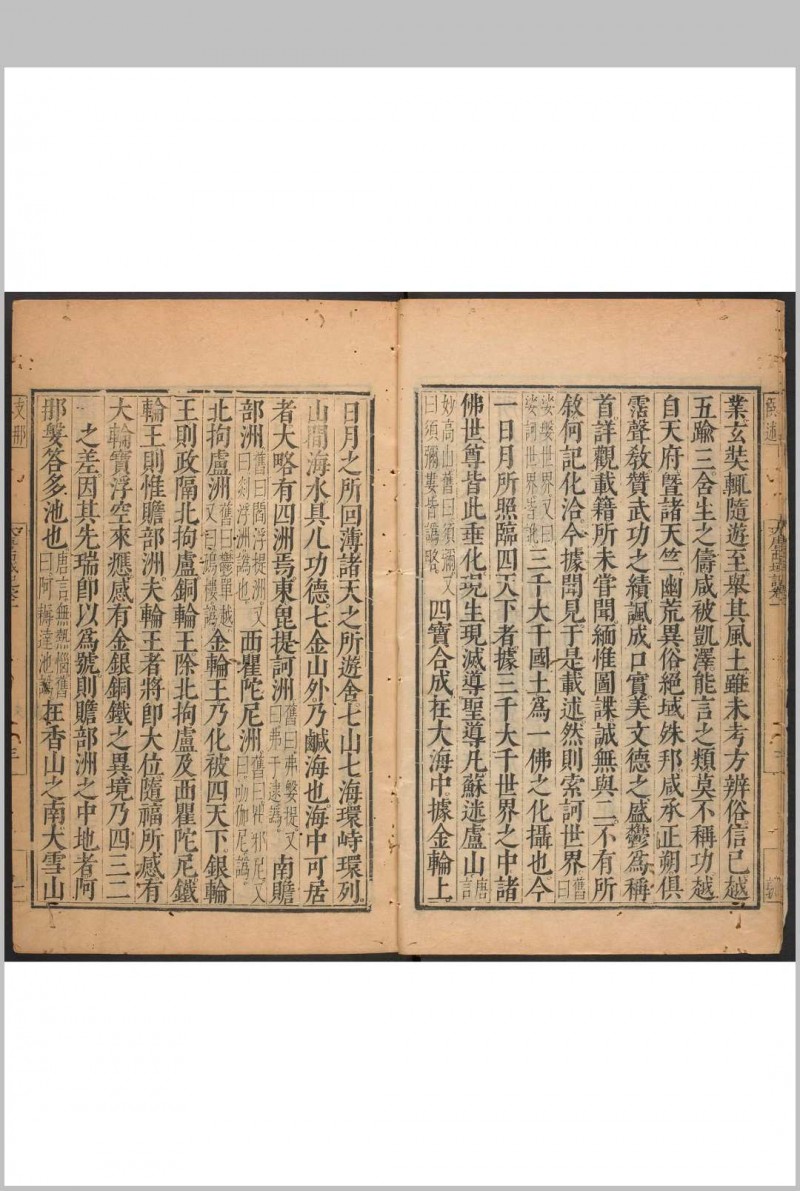 業玄奘輒隨遊至舉其風土雖未考方辨俗信已越
五踰三含生之儔咸被凱澤能言之類莫不稱功越
自天府暨諸天竺幽荒異俗絕域殊邦咸承正朔俱
霑聲教贊武功之績諷成口實美文德之盛鬱爲稱
首詳觀載籍所未甞聞緬惟圖諜誠無與二不有所
敘何記化洽今據聞見于是載述然則索訶世界舊曰
娑婆世界又曰娑訶世界皆訛三千大千國土爲一佛之化攝也今
一日月所照臨四天下者據三千大千世界之中諸
佛世尊皆此垂化現生現滅導聖導凡蘇迷盧山唐言
妙高山舊曰須彌又曰須彌婁皆譌略四寶合成在大海中據金輪上
日月之所回薄諸天之所遊舍七山七海環峙環列
山間海水具八功德七金山外乃鹹海也海中可居
者大略有四洲焉東毘提訶洲舊曰弗婺提又曰弗于逮譌南贍
部洲舊曰閻浮提洲又曰剡浮洲譌也西瞿陀尼洲舊曰瞿耶尼又曰劬伽尼譌
北拘盧洲舊曰鬱單越又曰鴻樓譌金輪王乃化被四天下銀輪
王則政隔北拘盧銅輪王除北拘盧及西瞿陀尼鐵
輪王則惟贍部洲夫輪王者將即大位隨福所感有
大輪寶浮空來應感有金銀銅鐵之異境乃四三二
之差因其先瑞卽以爲號則贍部洲之中地者阿
那婆答多池也唐言無熱惱舊曰阿耨達池譌在香山之南大雪山